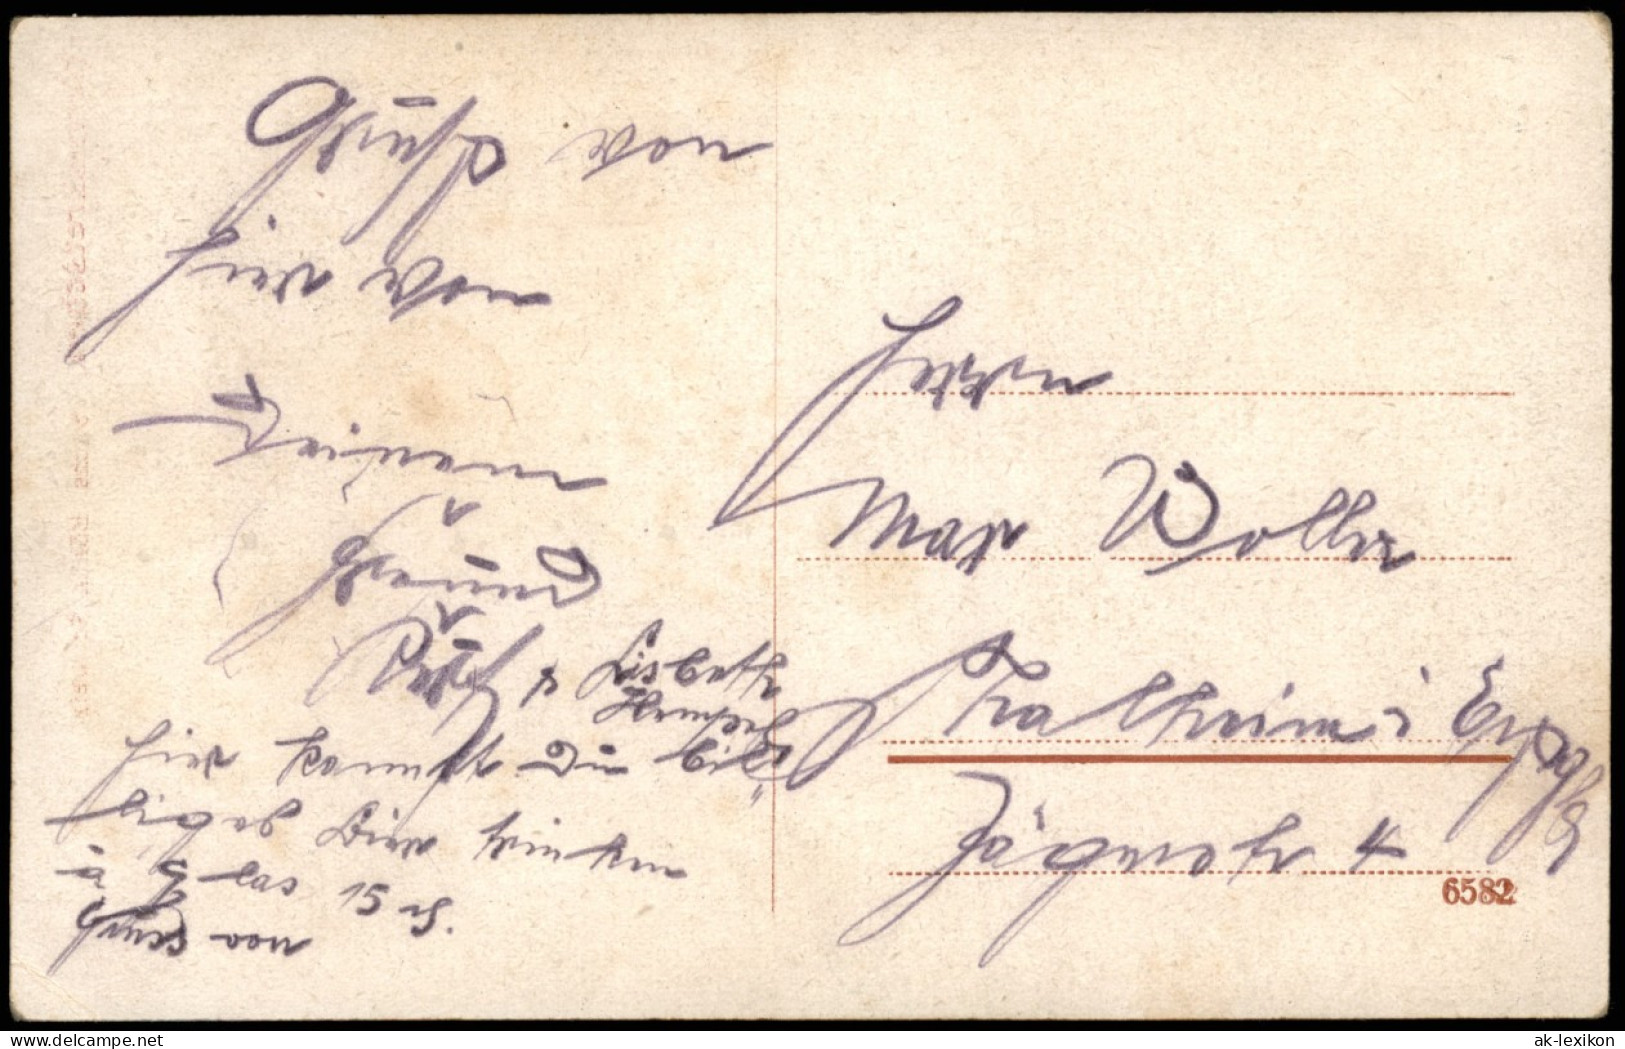 Gruß von
hier von
Deinem
Freund
& Lisbeth
Hempel
hier kannst Du bil-
liges Bier trinken
u Glas 15 d.
Gruss von
Herrn
Max Woller
Thalheim i Erzgb
Jägerstr. 4
6582
ak-lexikon